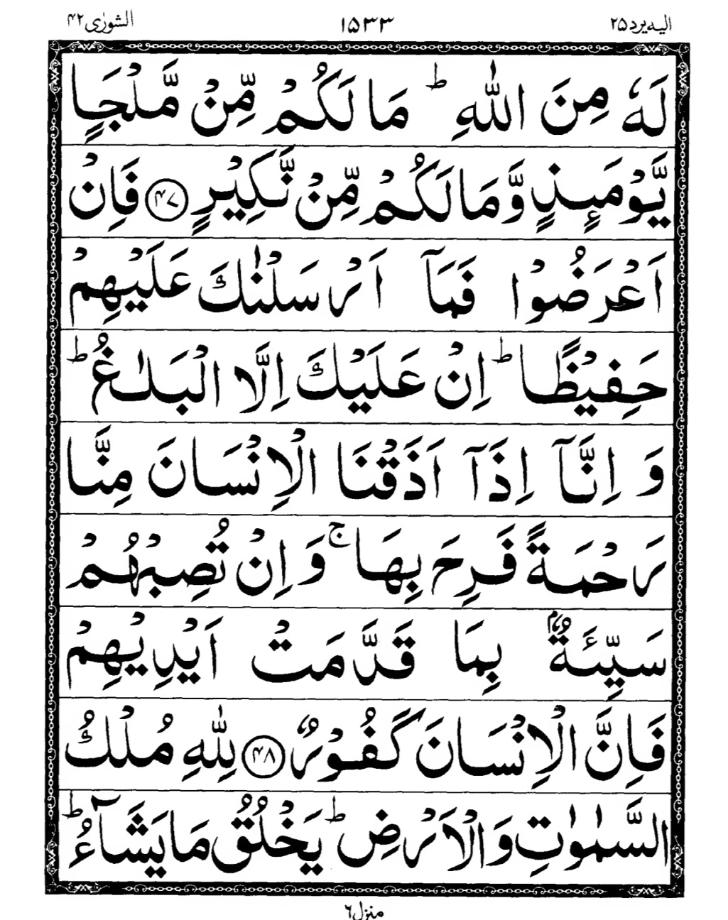 الیه یرد ۲۵ ۱۵۳۳ الشورٰی ۴۲
لَهٗ مِنَ اللّٰهِ ؕ مَا لَكُمْ مِّنْ مَّلْجَاٍ
یَّوْمَىِٕذٍ وَّمَا لَكُمْ مِّنْ نَّكِیْرٍ ﴿۴۷﴾ فَاِنْ
اَعْرَضُوْا فَمَاۤ اَرْسَلْنٰكَ عَلَیْهِمْ
حَفِیْظًا ؕ اِنْ عَلَیْكَ اِلَّا الْبَلٰغُ ؕ
وَ اِنَّاۤ اِذَاۤ اَذَقْنَا الْاِنْسَانَ مِنَّا
رَحْمَةً فَرِحَ بِهَا ۚ وَ اِنْ تُصِبْهُمْ
سَیِّئَةٌۢ بِمَا قَدَّمَتْ اَیْدِیْهِمْ
فَاِنَّ الْاِنْسَانَ كَفُوْرٌ ﴿۴۸﴾ لِلّٰهِ مُلْكُ
السَّمٰوٰتِ وَالْاَرْضِ ؕ یَخْلُقُ مَا یَشَآءُ ؕ
منزل ۶